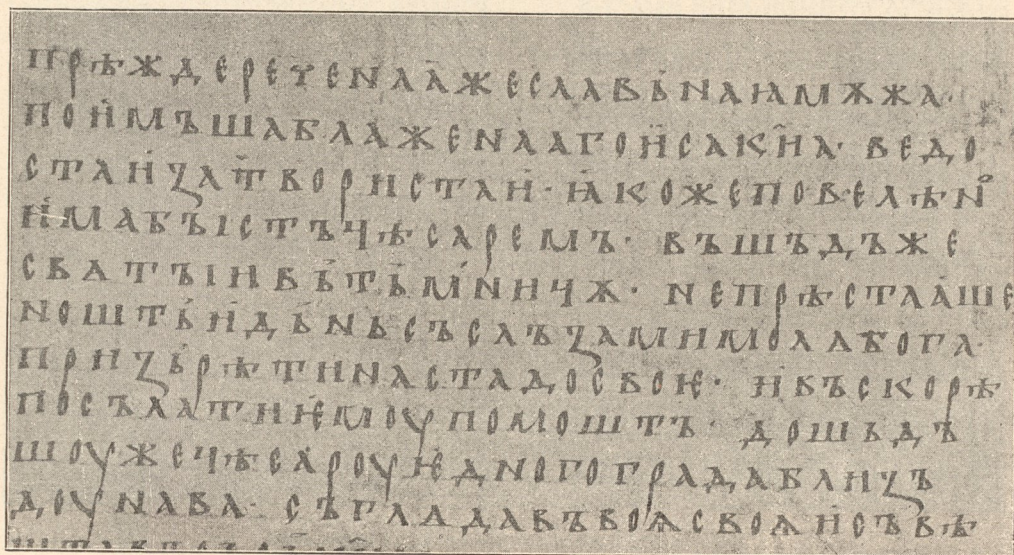 прѣждереченаꙗжеславьнаꙗмѫжа·
поимъшаблаженааго҅исакиꙗ· ведо
стаи҅ꙁатвористаи҅· ꙗ҅кожеповелѣно
и҅мабꙑстъцѣсаремъ· въшъдъже
сватꙑивьтьмьницѫ· непрѣстаꙗше
ноштьи҅дьньсъслъꙁамимолѧбога·
приꙁьрѣтинастадосвоѥ· и҅въскорѣ
посълатиѥ҅моупомошть· дошьдъ
шоужецѣсароуѥ҅дногоградаблиꙁъ
доунава· съглѧдавъвоѩсвоѩи҅съвѣ